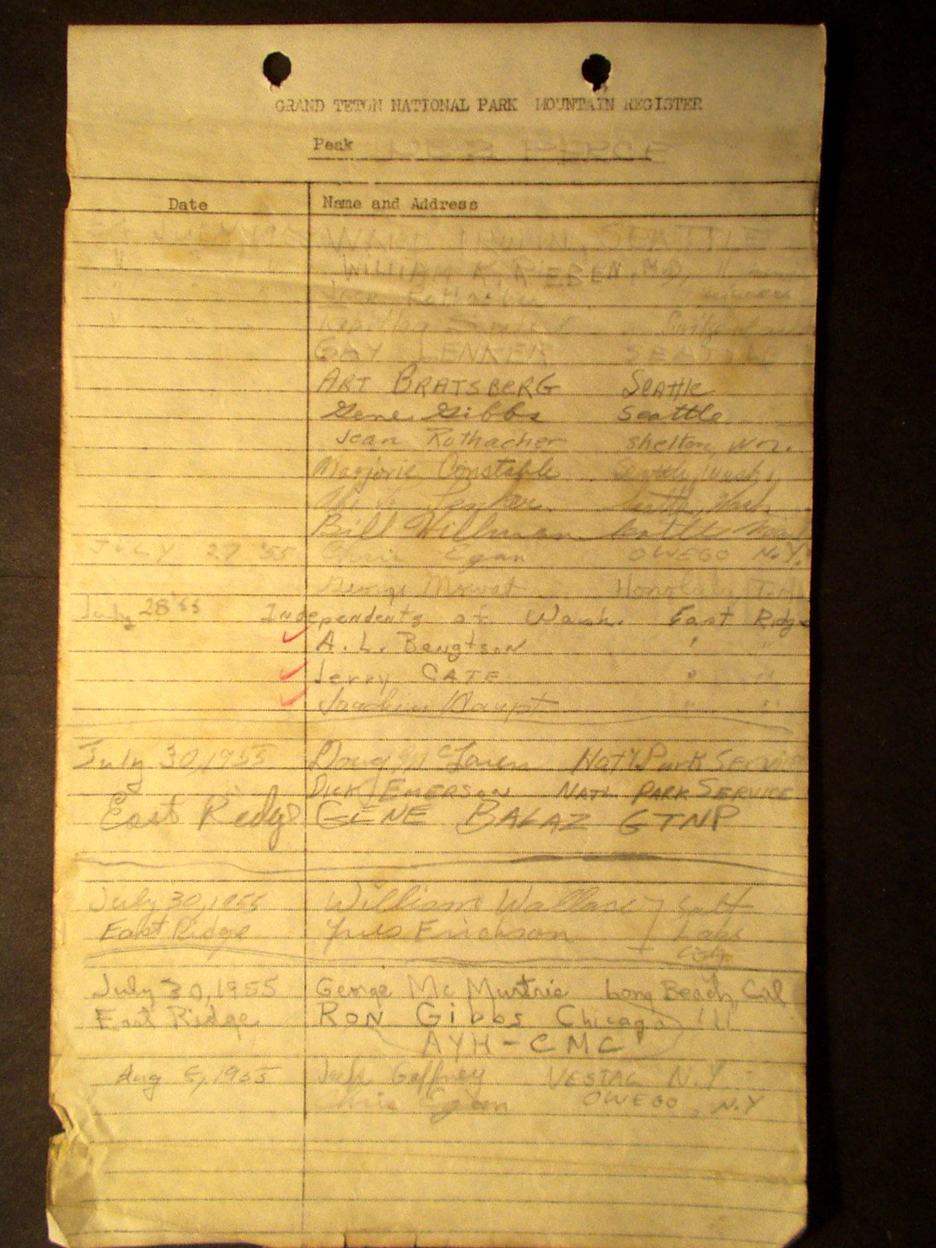 GRAND TETON NATIONAL PARK MOUNTAIN REGISTER
Peak
Date Name and Address
JULY SEATTLE
" " " WILLIAM K. RIEBEN, M.D.
" " " Jack Rothacher
" " "
GAY LENKER SEATTLE
ART BRATSBERG Seattle
Gene Gibbs Seattle
Jean Rothacher Shelton, Wn.
Marjorie Constable Seattle, Wash.
Lenker Seattle, Wash.
Bill Hillman Seattle Wash
JULY 27 '55 Chris Egan OWEGO N.Y.
George Mowat Honolulu
July 28 '55 Independents of Wash. East Ridge
A. L. Bengtson " "
Jerry CATE " "
" "
July 30, 1955 Doug McLaren Nat'l Park Service
DICK EMERSON NATL PARK SERVICE
East Ridge GENE BALAZ GTNP
July 30, 1955 William Wallace Salt
East Ridge Erickson Lake
City
July 30, 1955 George McMurtrie Long Beach, Cal
East Ridge RON Gibbs Chicago Ill
AYH-CMC
Aug 5, 1955 Jack Gaffney VESTAL N.Y.
Chris Egan OWEGO, N.Y